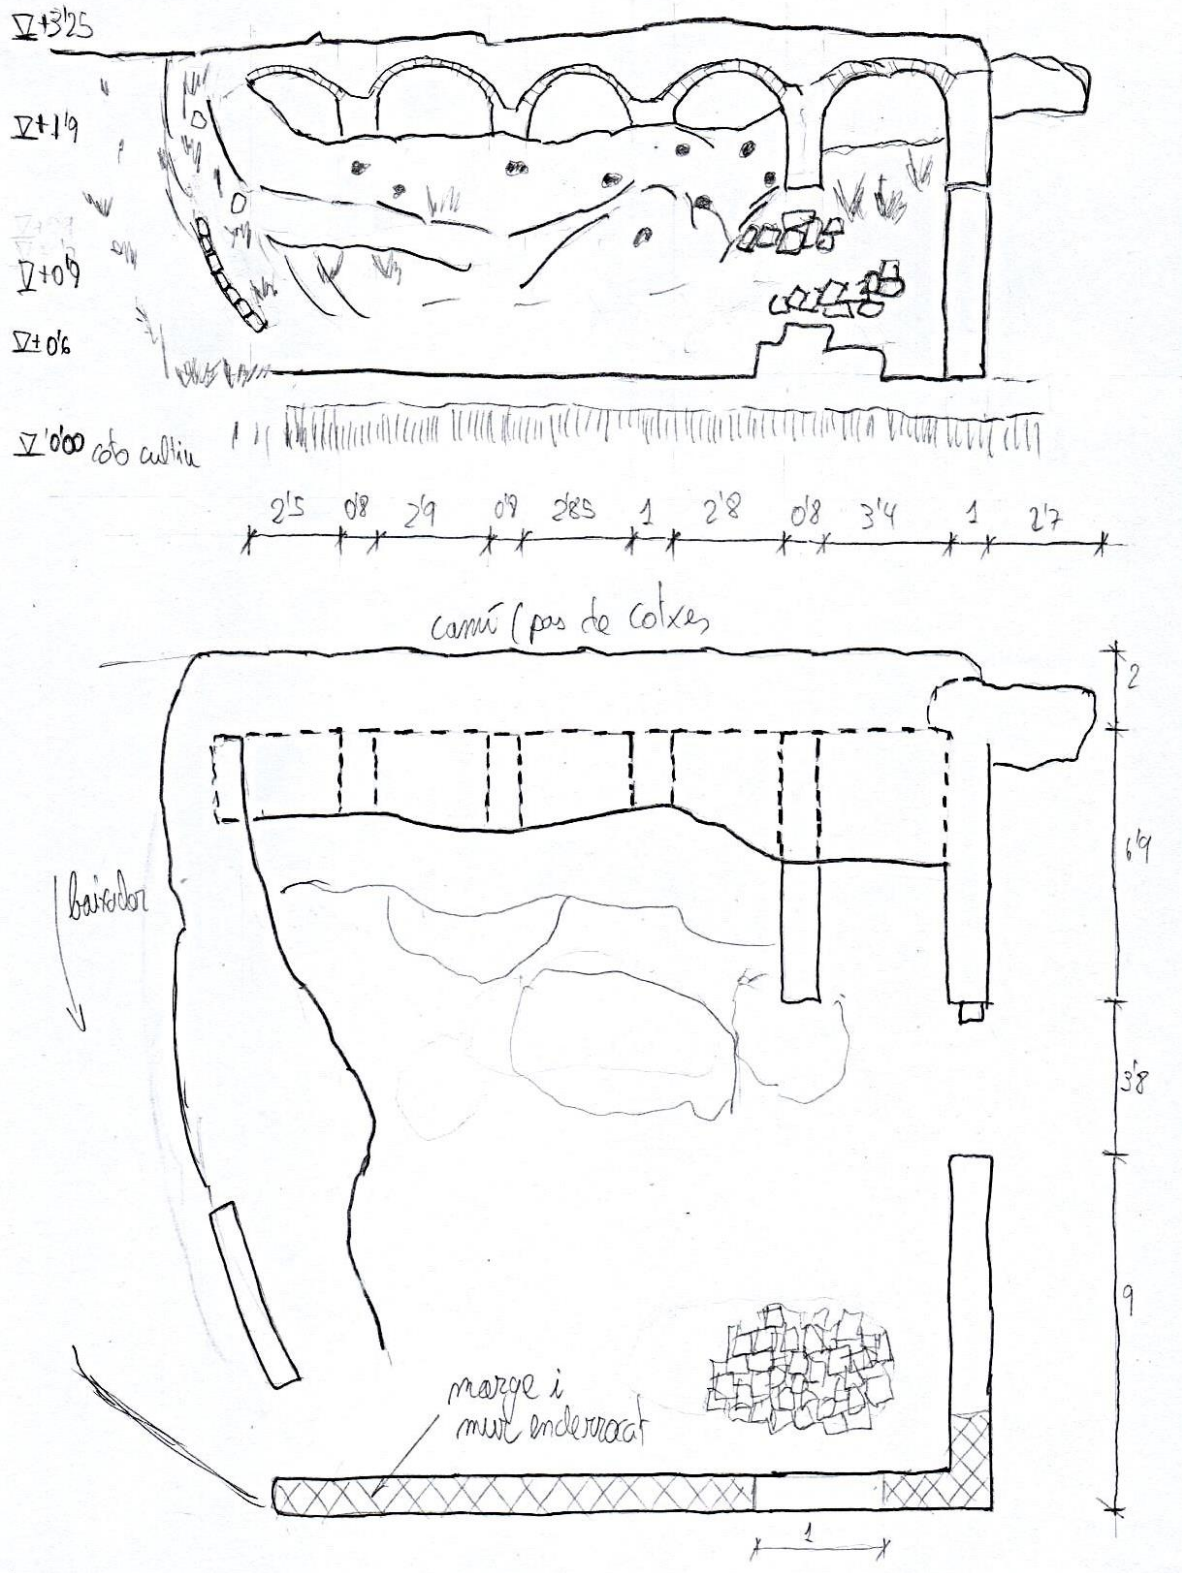 ∇+3'25
∇+1'9
∇+0'9
∇±0'6
∇'0'00 cota cultiu
2'5 0'8 2'9 0'8 2'85 1 2'8 0'8 3'4 1 2'7
camí (pas de cotxes
2
6'9
baixador
3'8
9
marge i
mur enderrocat
1